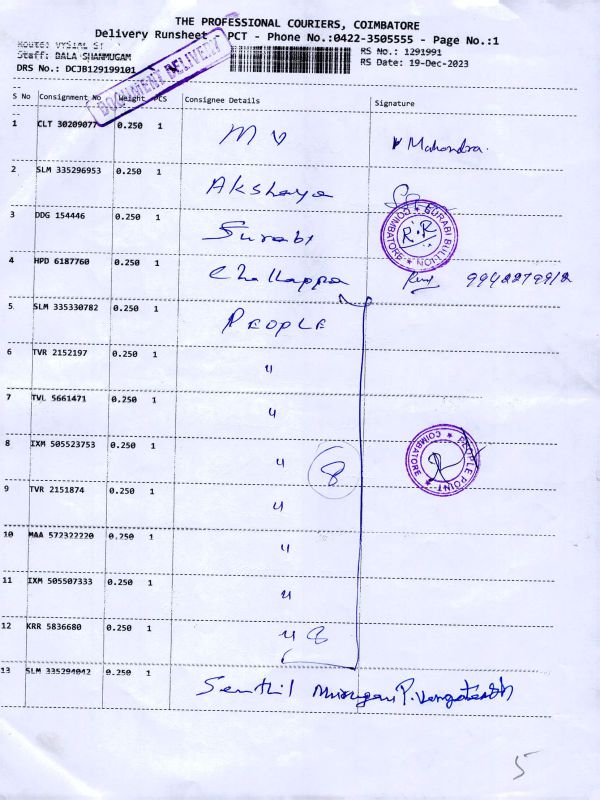 THE PROFESSIONAL COURIERS, COIMBATORE
Delivery Runsheet - PCT - Phone No.:0422-3505555 - Page No.:1
Route: VYSIAL ST
Staff: BALA SHANMUGAM
DRS No.: DCJB129199101
RS No.: 1291991
RS Date: 19-Dec-2023
DOCUMENT DELIVERY
S No Consignment No Weight PCS Consignee Details Signature
1 CLT 30209077 0.250 1 M V Mahondra.
2 SLM 335296953 0.250 1 Akshaya
3 DDG 154446 0.250 1 Surabi
SURABI BULLION ★ COIMBATORE ★
R.R
4 HPD 6187760 0.250 1 Challappa
5 SLM 335330782 0.250 1 PEOPLE
6 TVR 2152197 0.250 1 "
7 TVL 5661471 0.250 1 "
8 IXM 505523753 0.250 1 " 8
PEOPLE POINT ★ COIMBATORE ★
9 TVR 2151874 0.250 1 "
10 MAA 572322220 0.250 1 "
11 IXM 505507333 0.250 1 "
12 KRR 5836680 0.250 1 " 8
13 SLM 335294042 0.250 1 Senthil Murugan P. Vengatesh
5